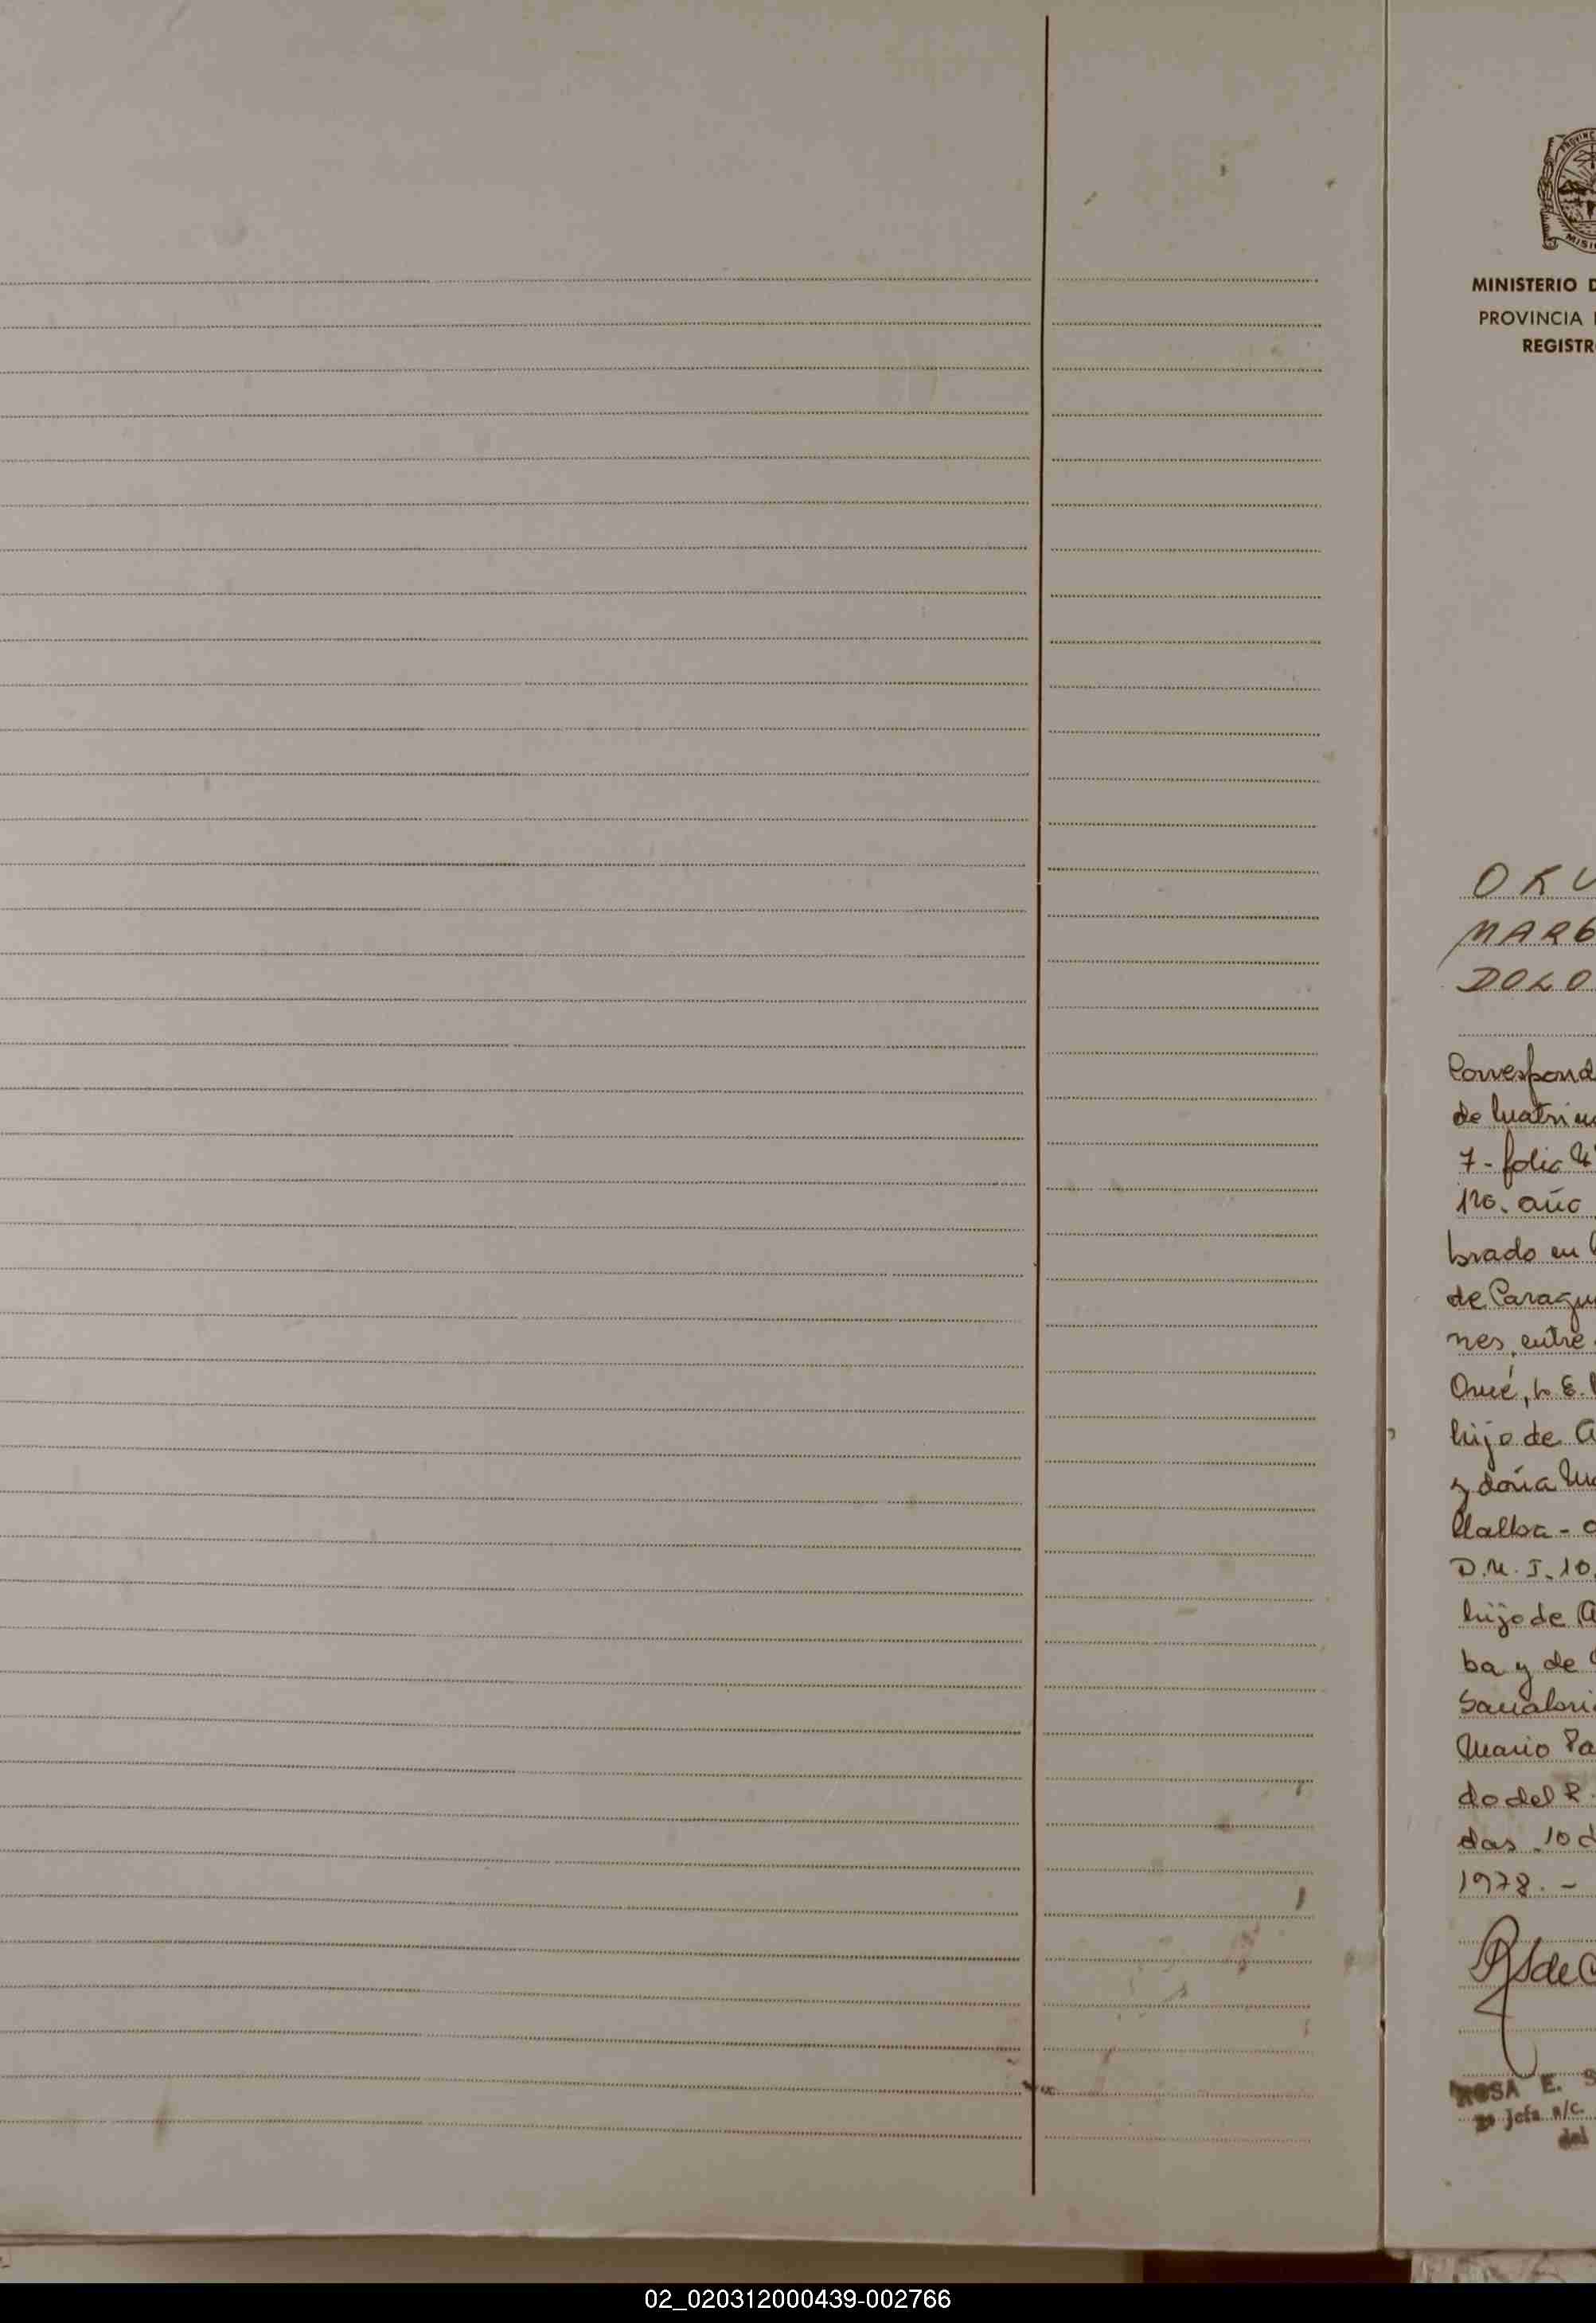 PROVINC
MISI
MINISTERIO D
PROVINCIA
REGISTR
MARG
DOLO
Correspond
de
7- folio
120. año
brado en
de Paragu
nes, entre
Orué, L. E.
hijo de
y doña Ma
llalba -
D.N.I. 10.
hijo de
ba y de
Sanatori
Mario Pa
do del R.
das 10 d
1978. -
ROSA E. S
2º Jefa a/c.
del
02_020312000439-002766